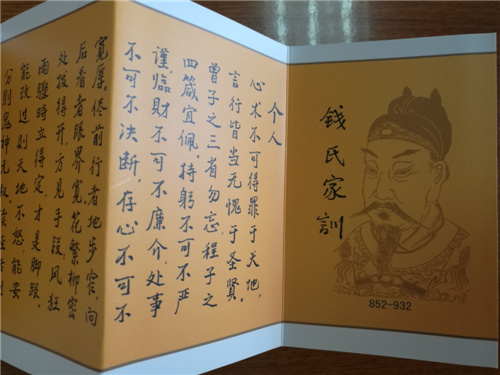 錢氏家訓
852-932
个人
心术不可得罪于天地,
言行皆当无愧于圣贤。
曾子之三省勿忘程子之
四箴宜佩。持躬不可不严
谨,临财不可不廉介,处事
不可不决断,存心不可不
宽厚。侭前行者地步窄,向
后看者眼界宽花繁柳密
处拨得开,方见手段,风狂
雨骤时立得定才是脚跟。
能改过则天地不怒,能安
分则鬼神无权。读经